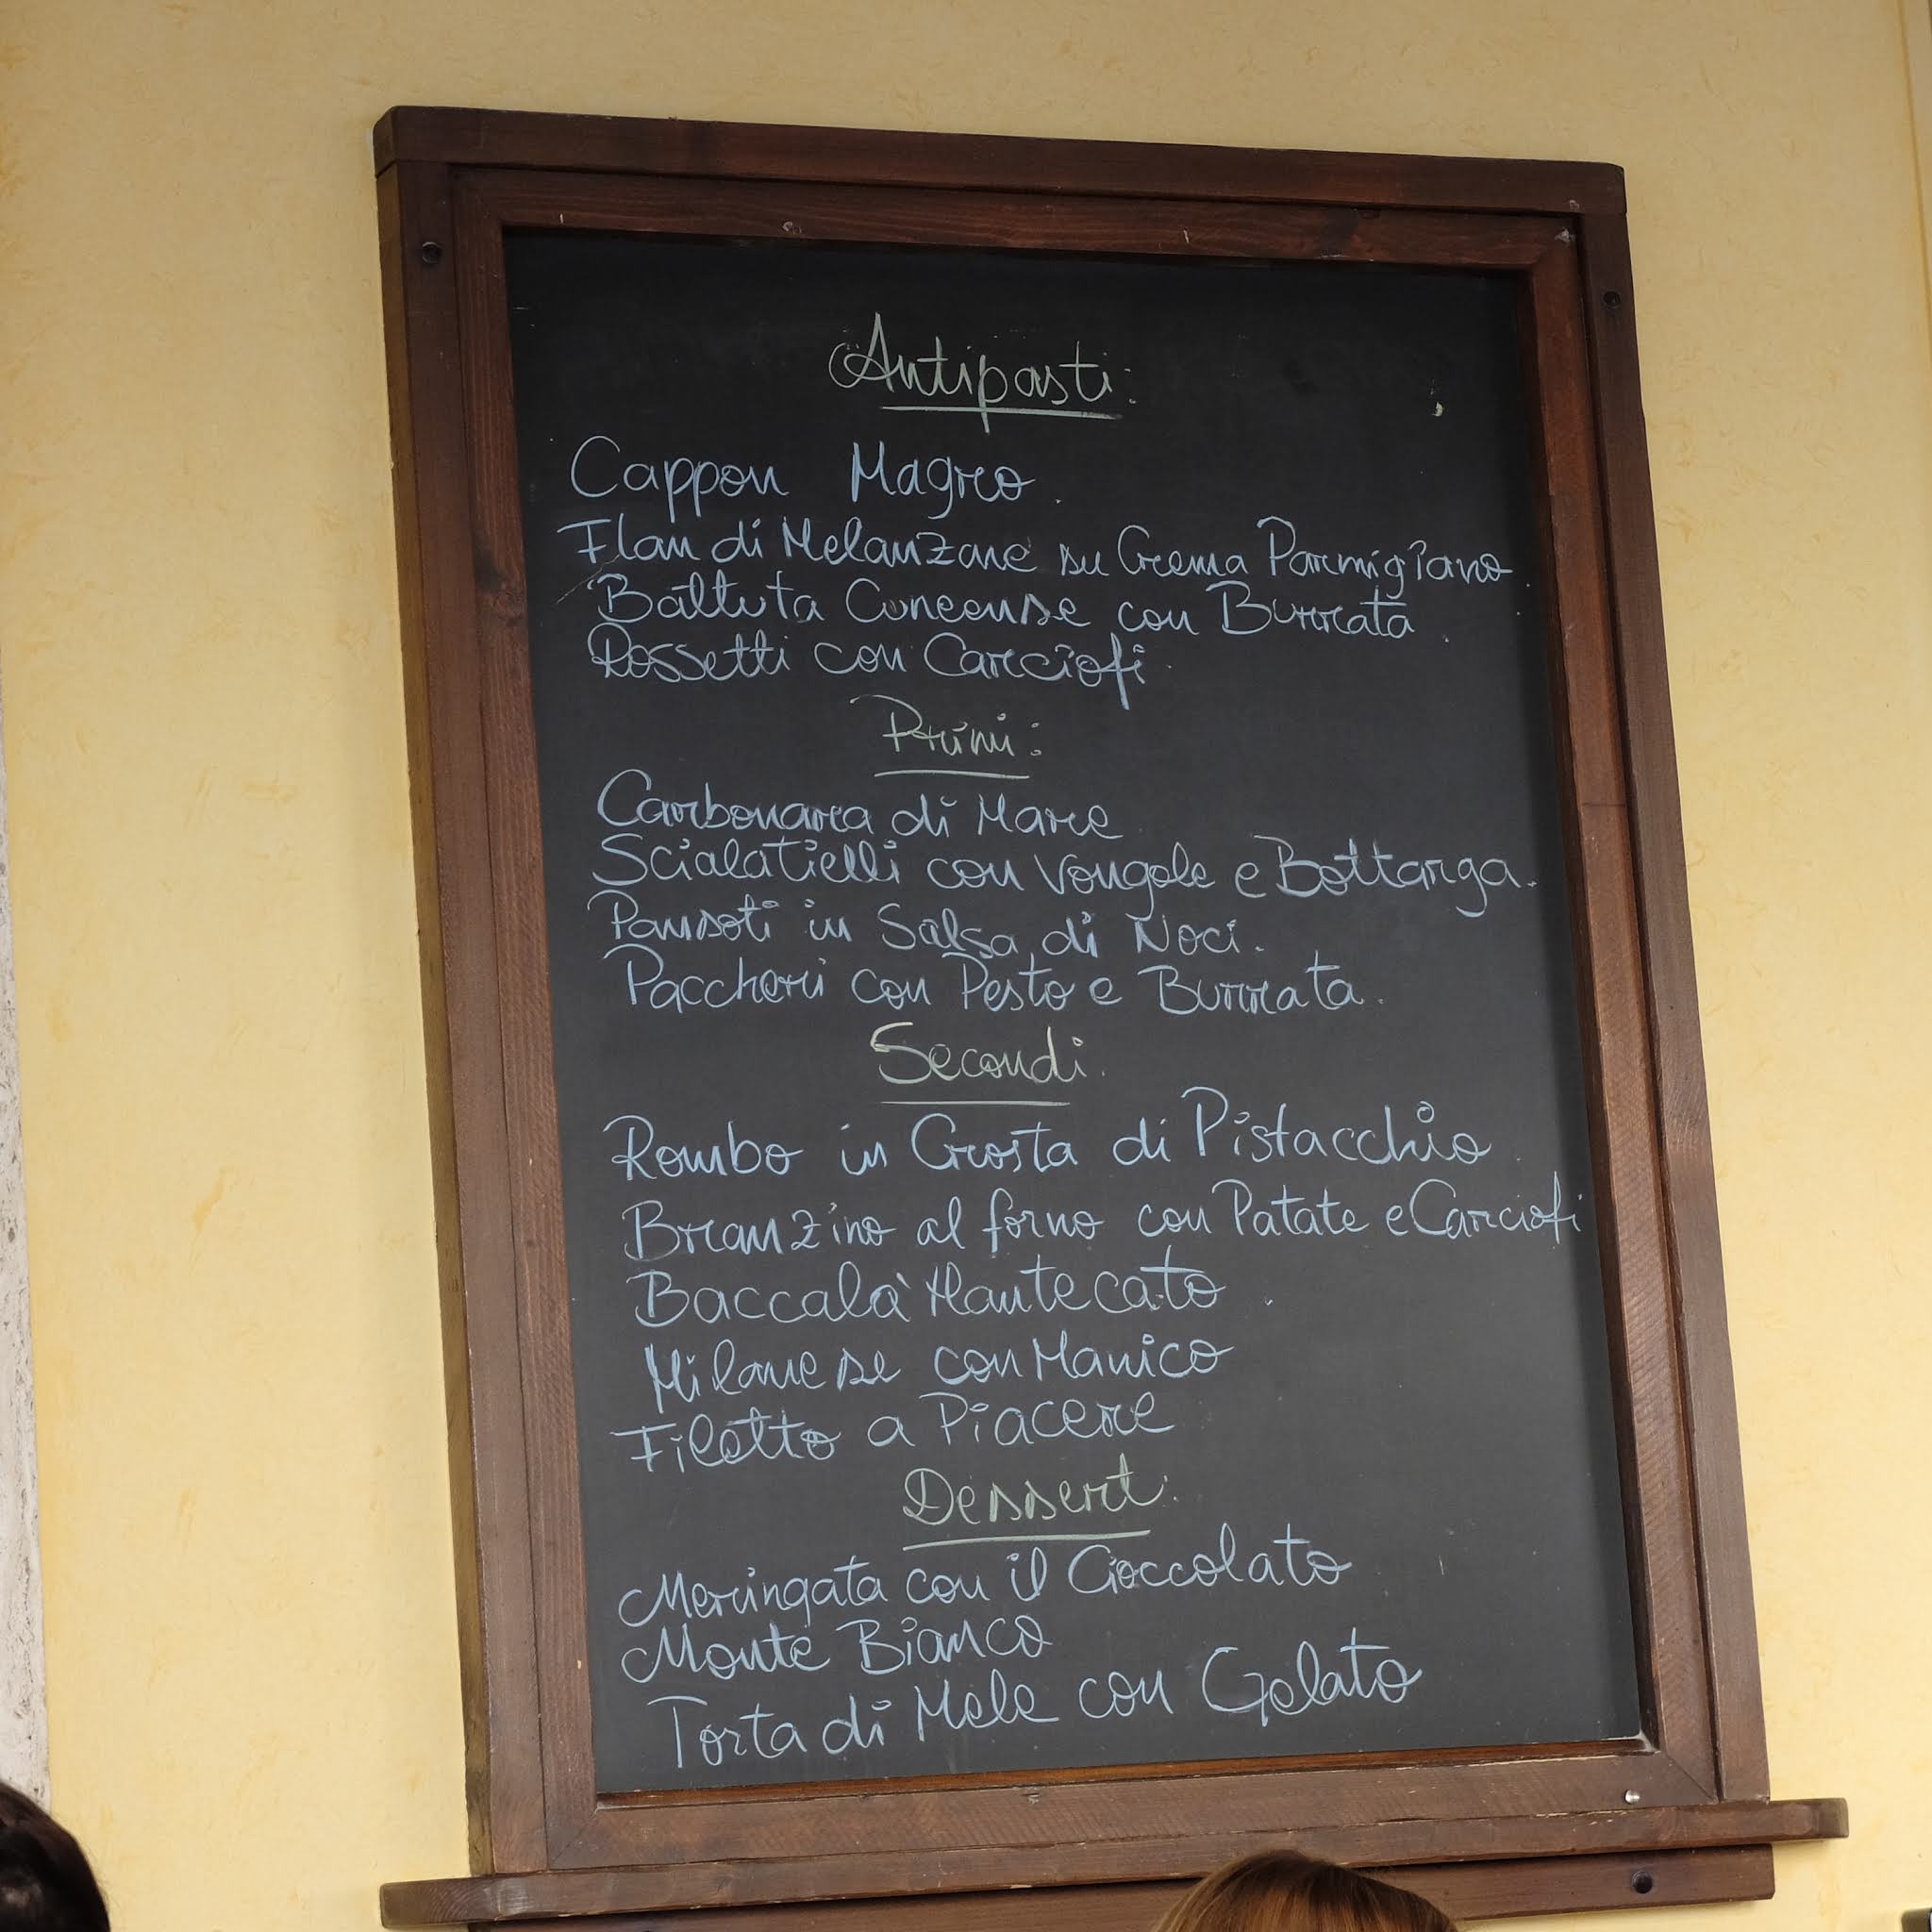 Antipasti:
Cappon Magro.
Flan di Melanzane su Crema Parmigiano.
Battuta Cuneense con Burrata.
Rossetti con Carciofi.
Primi:
Carbonara di Mare
Scialatielli con Vongole e Bottarga.
Pansoti in Salsa di Noci.
Paccheri con Pesto e Burrata.
Secondi.
Rombo in Crosta di Pistacchio.
Branzino al forno con Patate e Carciofi
Baccalà Mantecato.
Milanese con Manico
Filetto a Piacere
Dessert:
Meringata con il Cioccolato
Monte Bianco
Torta di Mele con Gelato